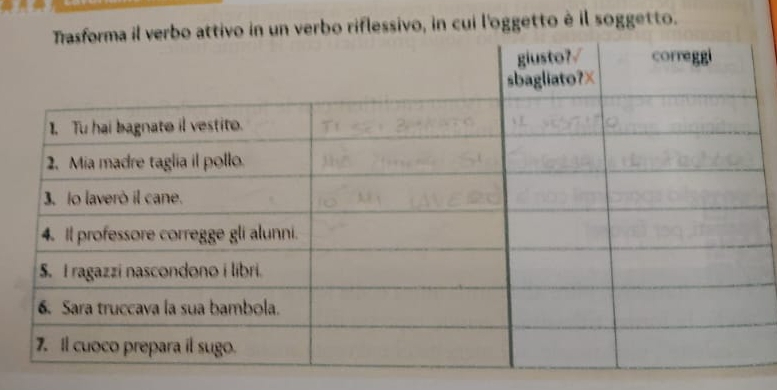 Trasforma il verbo attivo in un verbo riflessivo, in cui l'oggetto è il soggetto.
giusto?√ correggi
sbagliato?X
1. Tu hai bagnato il vestito. TI SEI BAGNATO IL VESTITO
2. Mia madre taglia il pollo. MIA SI
3. Io laverò il cane. IO MI LAVERÒ
4. Il professore corregge gli alunni.
5. I ragazzi nascondono i libri.
6. Sara truccava la sua bambola.
7. Il cuoco prepara il sugo.